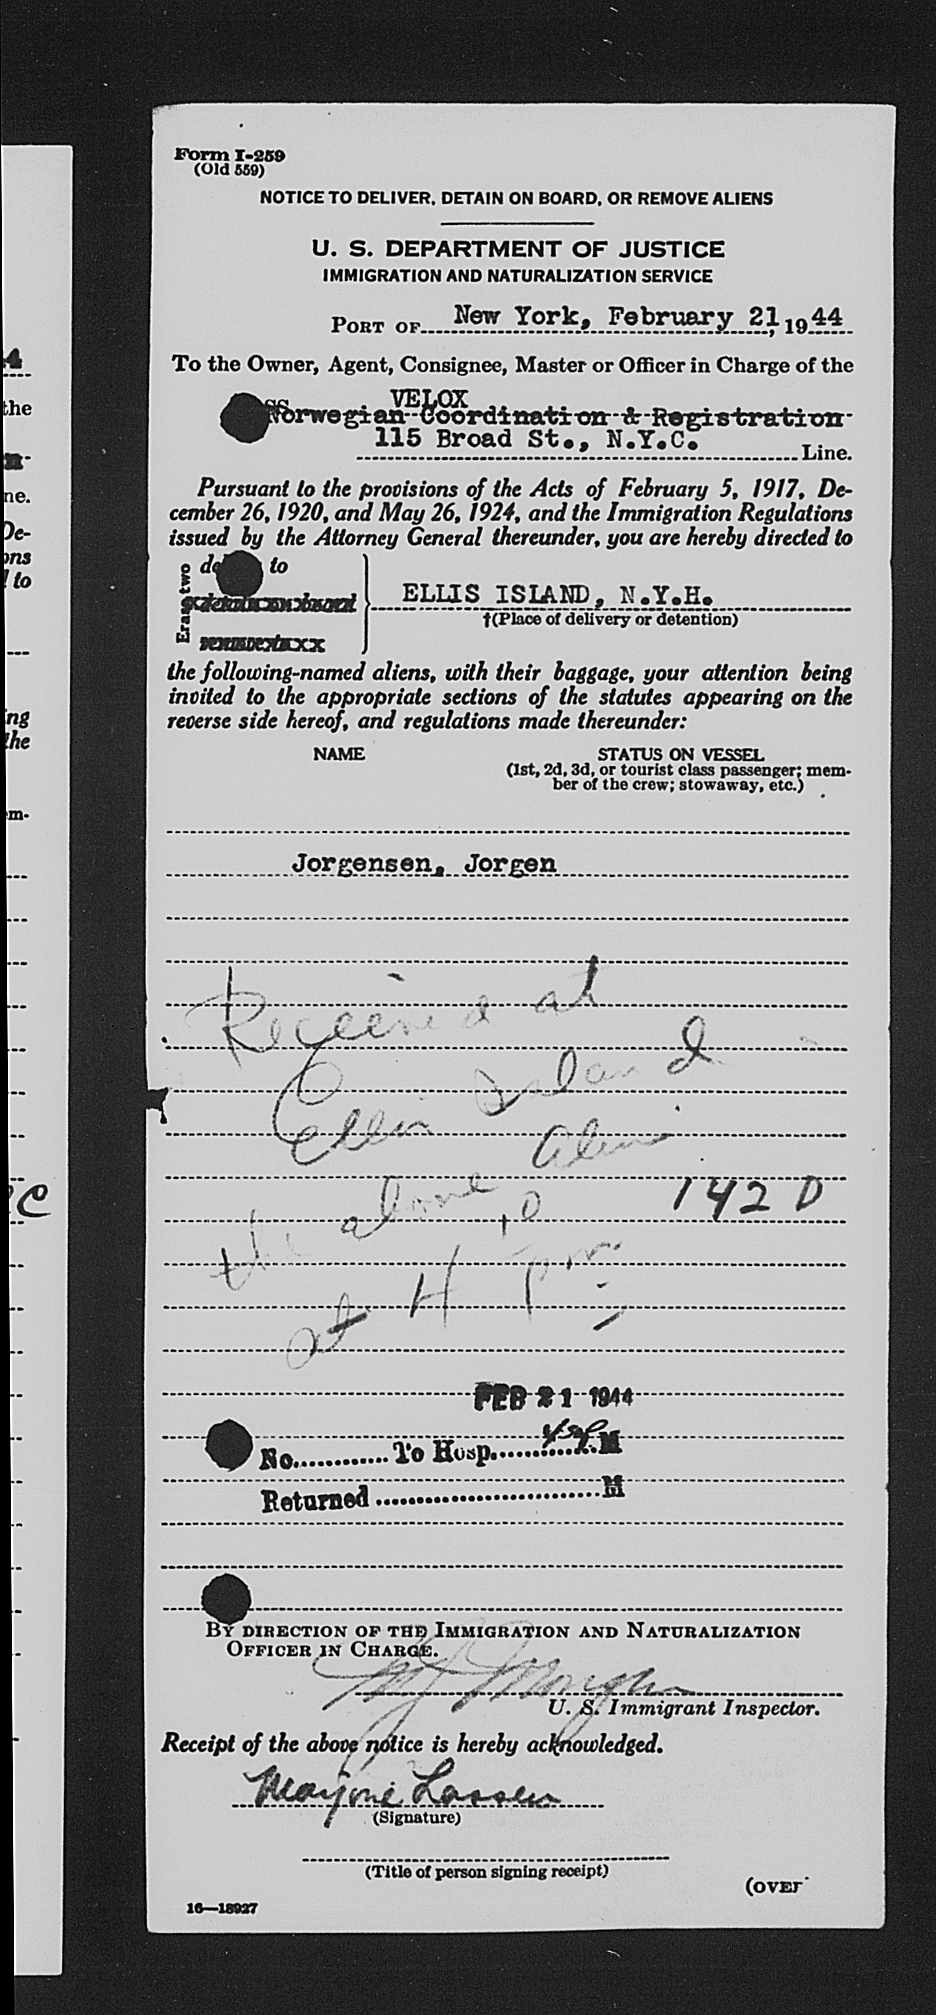 4
the
n
ne.
De-
ons
l to
ing
the
em-
Form I-259
(Old 559)
NOTICE TO DELIVER, DETAIN ON BOARD, OR REMOVE ALIENS
U. S. DEPARTMENT OF JUSTICE
IMMIGRATION AND NATURALIZATION SERVICE
PORT OF New York, February 21, 1944
To the Owner, Agent, Consignee, Master or Officer in Charge of the
SS VELOX
Norwegian Coordination & Registration
115 Broad St., N.Y.C. Line.
Pursuant to the provisions of the Acts of February 5, 1917, De-
cember 26, 1920, and May 26, 1924, and the Immigration Regulations
issued by the Attorney General thereunder, you are hereby directed to
Erase two
de to
ELLIS ISLAND, N.Y.H.
†(Place of delivery or detention)
the following-named aliens, with their baggage, your attention being
invited to the appropriate sections of the statutes appearing on the
reverse side hereof, and regulations made thereunder:
NAME STATUS ON VESSEL
(1st, 2d, 3d, or tourist class passenger; mem-
ber of the crew; stowaway, etc.)
Jorgensen, Jorgen
Received at
Ellis Island
the above alien
142 D
at 4 pm
FEB 21 1944
No. To Hosp. M
Returned M
BY DIRECTION OF THE IMMIGRATION AND NATURALIZATION
OFFICER IN CHARGE.
U. S. Immigrant Inspector.
Receipt of the above notice is hereby acknowledged.
Marjorie Lassen
(Signature)
(Title of person signing receipt)
(OVER
16—18927